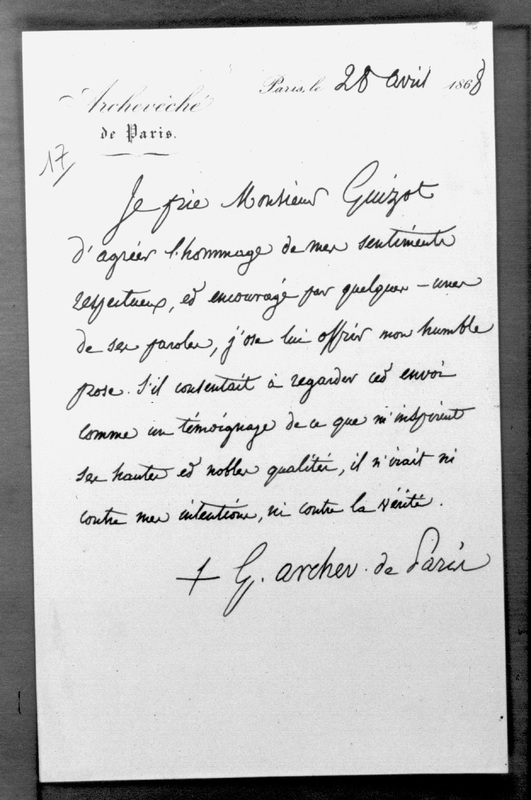 Archevêché
de Paris.
Paris, le 28 avril 1868
17
Je prie Monsieur Guizot
d'agréer l'hommage de mes sentiments
respectueux, et encouragé par quelques-unes
de ses paroles, j'ose lui offrir mon humble
prose. S'il consentait à regarder cet envoi
comme un témoignage de ce que m'inspirent
ses hautes et nobles qualités, il n'irait ni
contre mes intentions, ni contre la vérité.
+ G. archev. de Paris